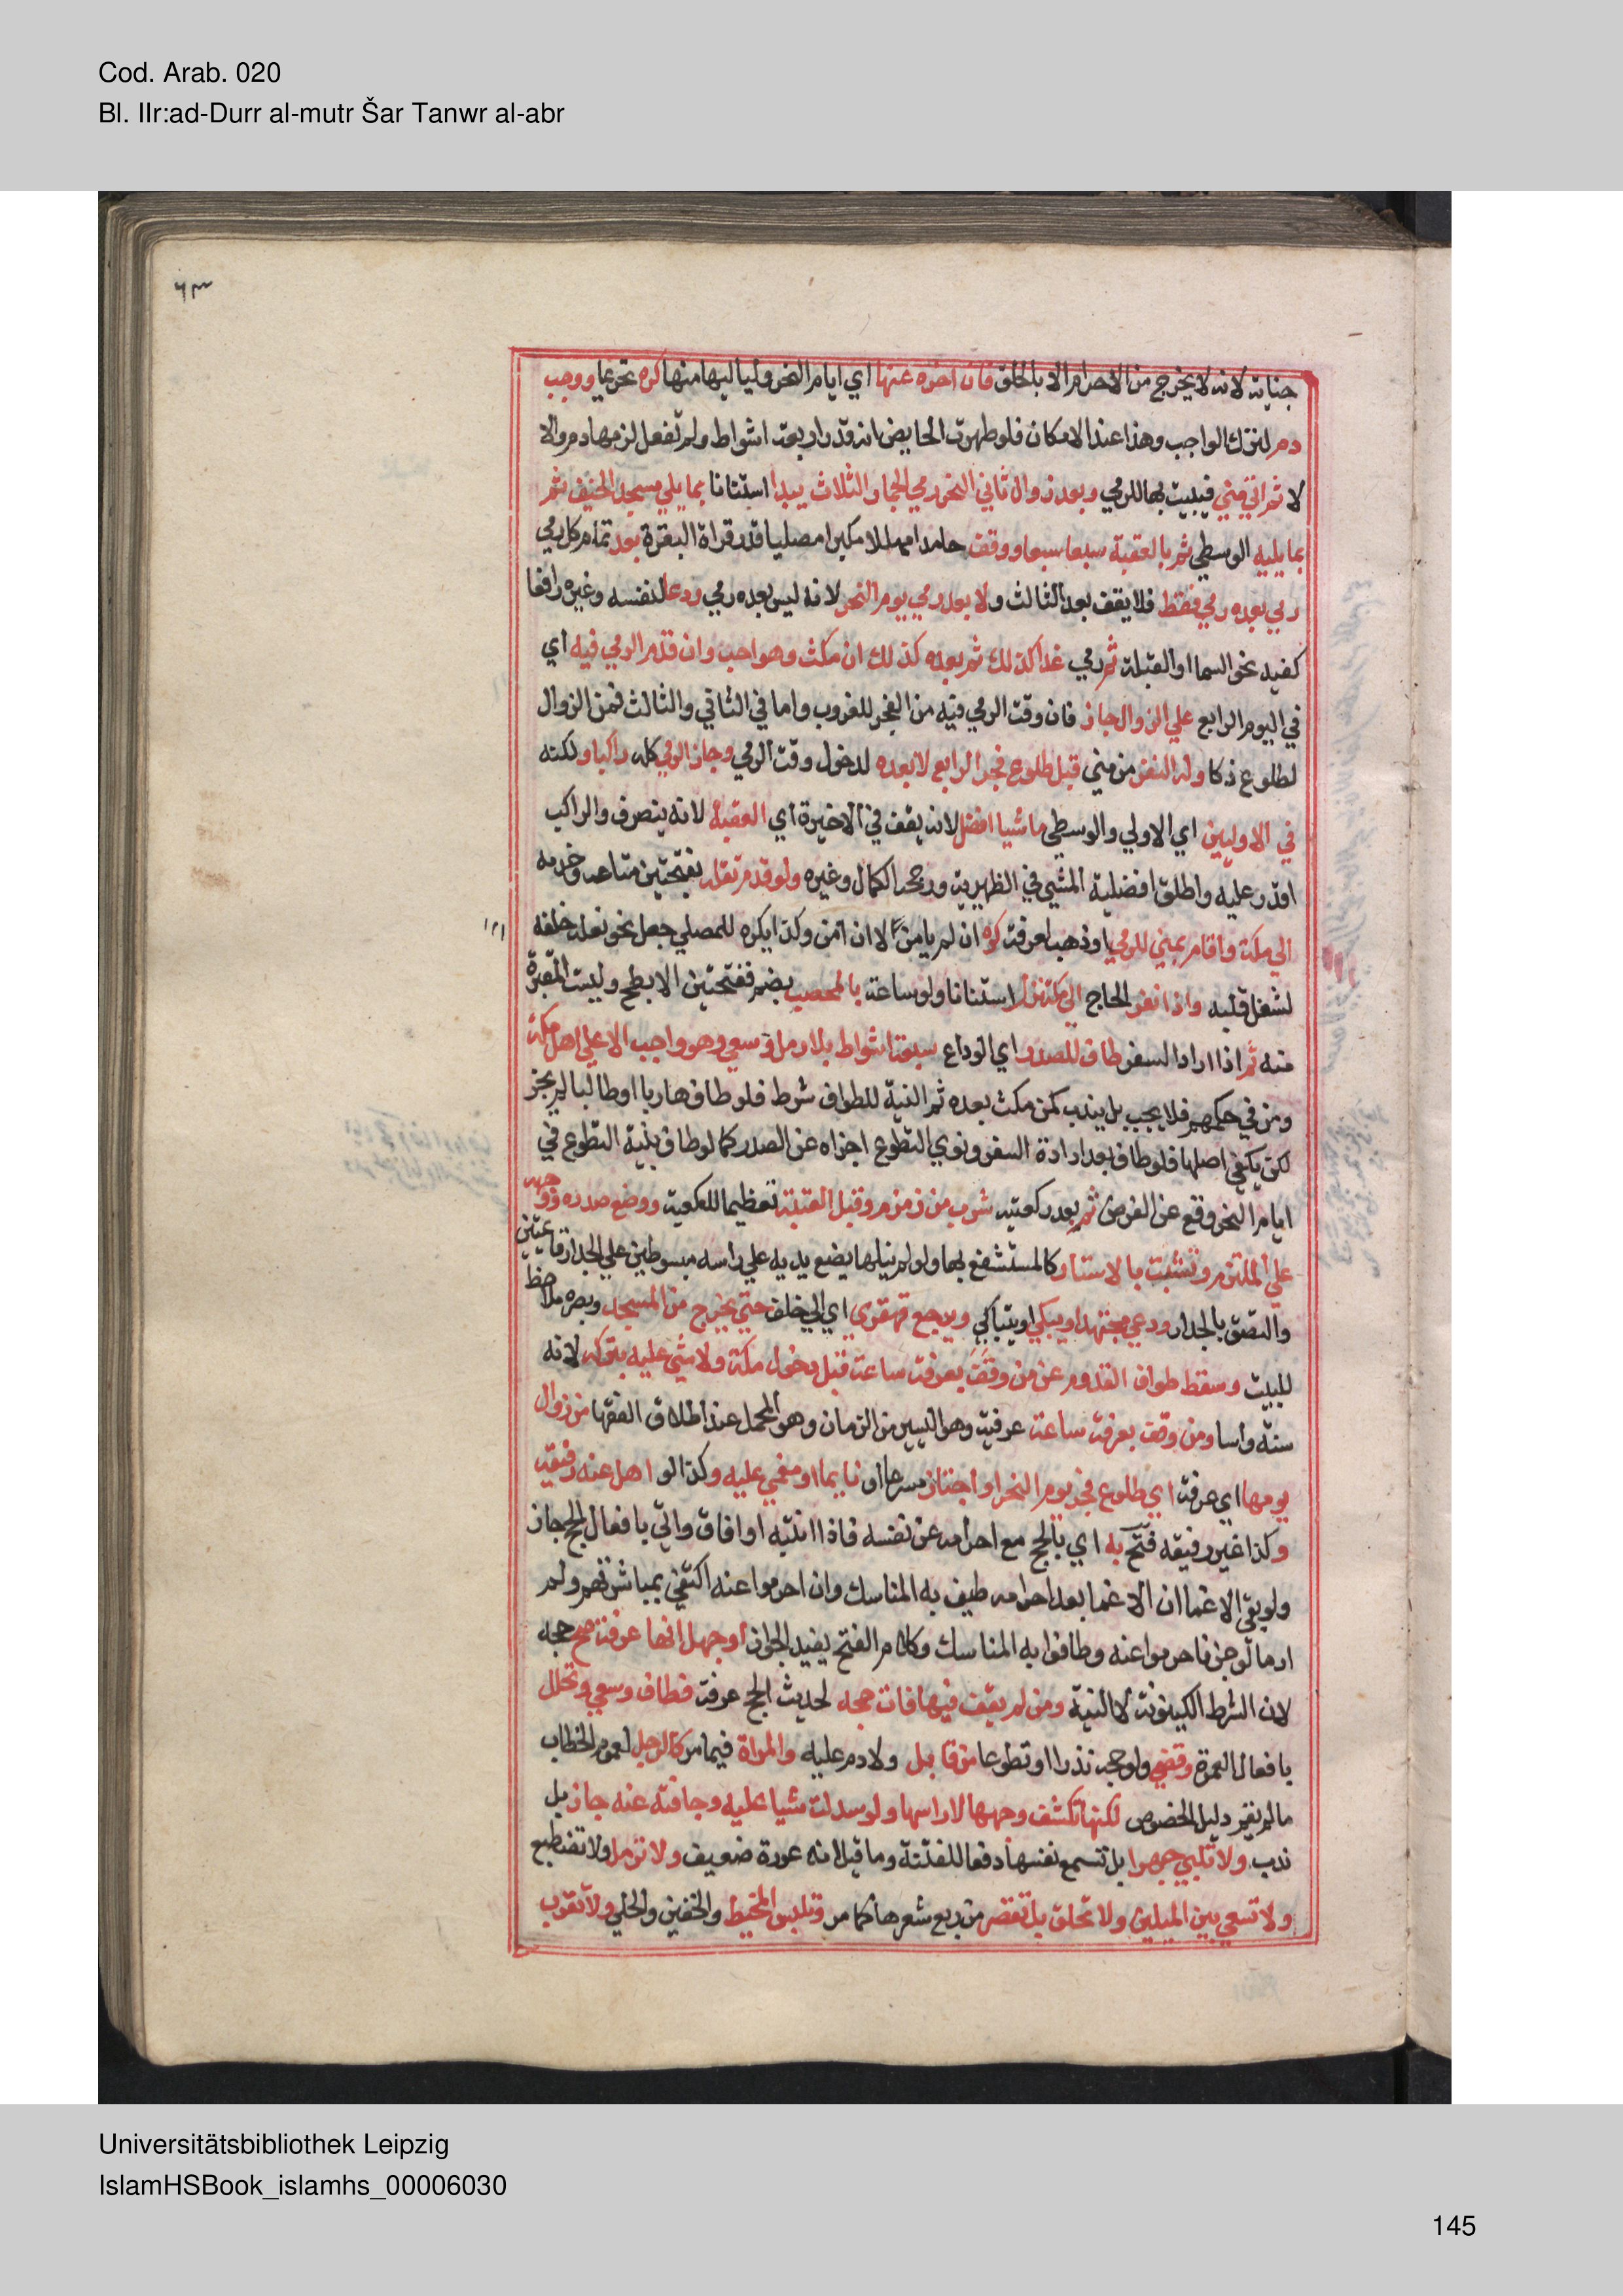 Cod. Arab. 020
Bl. IIr:ad-Durr al-mutr Šar Tanwr al-abr
٦٣
جناية لانه لا يخرج من الاحرام الا بالحلق فان اخره عنها اي ايام النحر وليا ليها منها كره تحريما ووجب
دم لترك الواجب وهذا عند الامكان فلو طهرت الحايض ان قدر اربعة اشواط ولم تفعل لزمها دم والا
لا ثم اتي مني فيبيت بها للرمي وبعد زوال ثاني النحر رمي الجمار الثلاث يبدا استنانا بما يلي مسجد الخيف ثم
بما يليه الوسطي ثم بالعقبة سبعا سبعا ووقف حامدا مهللا مكبرا مصليا قدر قراة البقرة بعد تمام كل رمي
رمي بعده رمي فقط فلا يقف بعد الثالث ولا بعد رمي يوم النحر لانه ليس بعده رمي ودعا لنفسه وغيره رافعا
كفيه نحو السما او القبلة ثم رمي غدا كذلك ثم بعده كذلك ان مكث وهو احب وان قدم الرمي فيه اي
في اليوم الرابع علي الزوال جاز فان وقت الرمي فيه من الفجر للغروب واما في الثاني والثالث فمن الزوال
لطلوع ذكا وله النفر من مني قبل طلوع فجر الرابع لا بعده لدخول وقت الرمي وجاز الرمي كله راكبا ولكنه
في الاوليين اي الاولي والوسطي ماشيا افضل لانه يقف في الاخيرة اي العقبة لانه ينصرف والراكب
اقدر عليه واطلق افضلية المشي في الظهيرية ورجحه الكمال وغيره ولو قدم ثقله بفتحتين متاعه وخدمه
الي مكة واقام بمني للرمي او ذهب لعرفة كره ان لم يامن لا ان امن وكذا يكره للمصلي جعل نحو نعله خلفه
لشغل قلبه واذا نفر الحاج الي مكة نزل استنانا ولو ساعة بالمحصب بضم ففتحتين الابطح وليست المقبرة
منه ثم اذا اراد السفر طاف للصدر اي الوداع سبعة اشواط بلا رمل وسعي وهو واجب الا علي اهل مكة
ومن في حكمهم فلا يجب بل يندب كمن مكث بعده ثم النية للطواف شرط فلو طاف هاربا او طالبا لم يجز
لكن يكفي اصلها فلو طاف بعد ارادة السفر ونوي التطوع اجزاه عن الصدر كما لو طاف بنية التطوع في
ايام النحر وقع عن الفرض ثم بعد ركعتيه شرب من زمزم وقبل العتبة تعظيما للكعبة ووضع صدره ووجهه
علي الملتزم وتشبث بالاستار كالمستشفع بها ولو لم ينلها يضع يديه علي راسه مبسوطتين علي الجدار قائمتين
والتصق بالجدار ودعي مجتهدا ويبكي او يتباكي ويرجع قهقري اي الي خلف حتي يخرج من المسجد وبصره ملاحظ
للبيت وسقط طواف القدوم عن من وقف بعرفة ساعة قبل دخول مكة ولا شي عليه بتركه لانه
سنة واسا ومن وقف بعرفة ساعة عرفية وهو اليسير من الزمان وهو المحمل عند اطلاق الفقها من زوال
يومها اي عرفة اي طلوع فجر يوم النحر او اجتاز مسرعا او نايما او مغمي عليه وكذا لو اهل عنه رفيقه
وكذا غير رفيقه فتح به اي بالحج مع احرامه عن نفسه فاذا انتبه او افاق واتي بافعال الحج جاز
ولو بقي الاغما ان الاغما بعد احرامه طيف به المناسك وان احرموا عنه اكتفي بمباشرتهم ولم
ار ما لو جن فاحرموا عنه وطافوا به المناسك وكلام الفتح يفيد الجواز او جهل انها عرفة صح حجه
لان الشرط الكينونة لا النية ومن لم يقف فيها فات حجه لحديث الحج عرفة فطاف وسعي وتحلل
بافعال العمرة وقضي ولو حجه نذرا او تطوعا من قابل ولا دم عليه والمراة فيما مر كالرجل لعموم الخطاب
ما لم يقم دليل الخصوص لكنها تكشف وجهها لا راسها ولو سدلت شيا عليه وجافته عنه جاز بل
ندب ولا تلبي جهرا بل تسمع نفسها دفعا للفتنة وما قيل انه عورة ضعيف ولا ترمل ولا تضطبع
ولا تسعي بين الميلين ولا تحلق بل تقصر من ربع شعرها كما مر وتلبس المخيط والخفين والحلي ولا تقرب
Universitätsbibliothek Leipzig
IslamHSBook_islamhs_00006030
145